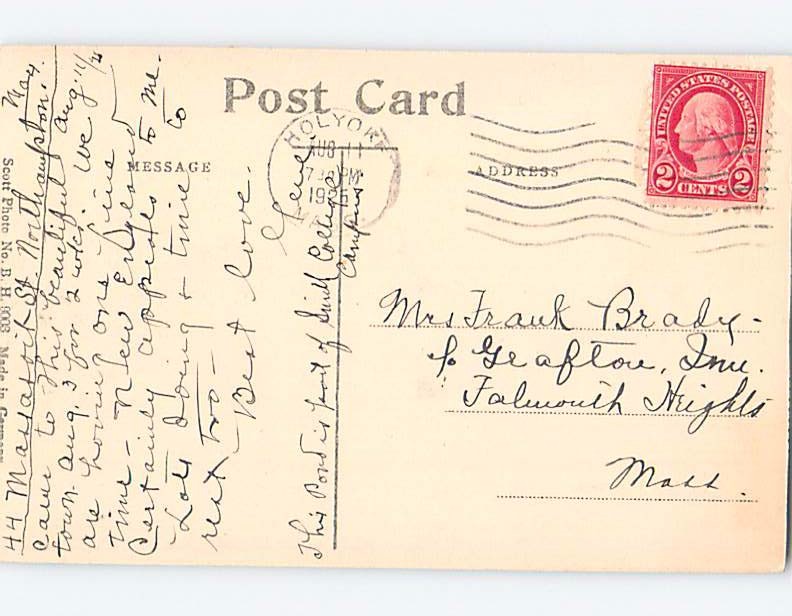 Post Card
MESSAGE
ADDRESS
HOLYOKE
AUG 11
7 PM
192
UNITED STATES POSTAGE
2 CENTS 2
Mrs Frank Brady -
c/o Grafton, Inn.
Falmouth Heights
Mass.
44 Massasoit St Northampton. Mass.
Aug. 11/
Came to this beautiful
town Aug. 3 for 2 wks. We
are having one fine
time - New England
Certainly appeals to me.
Lots doing & time to
rest too -
Best love.
This Pond is part of Smith College
Campus
Scott Photo No. B. H. 9003 Made in Germany